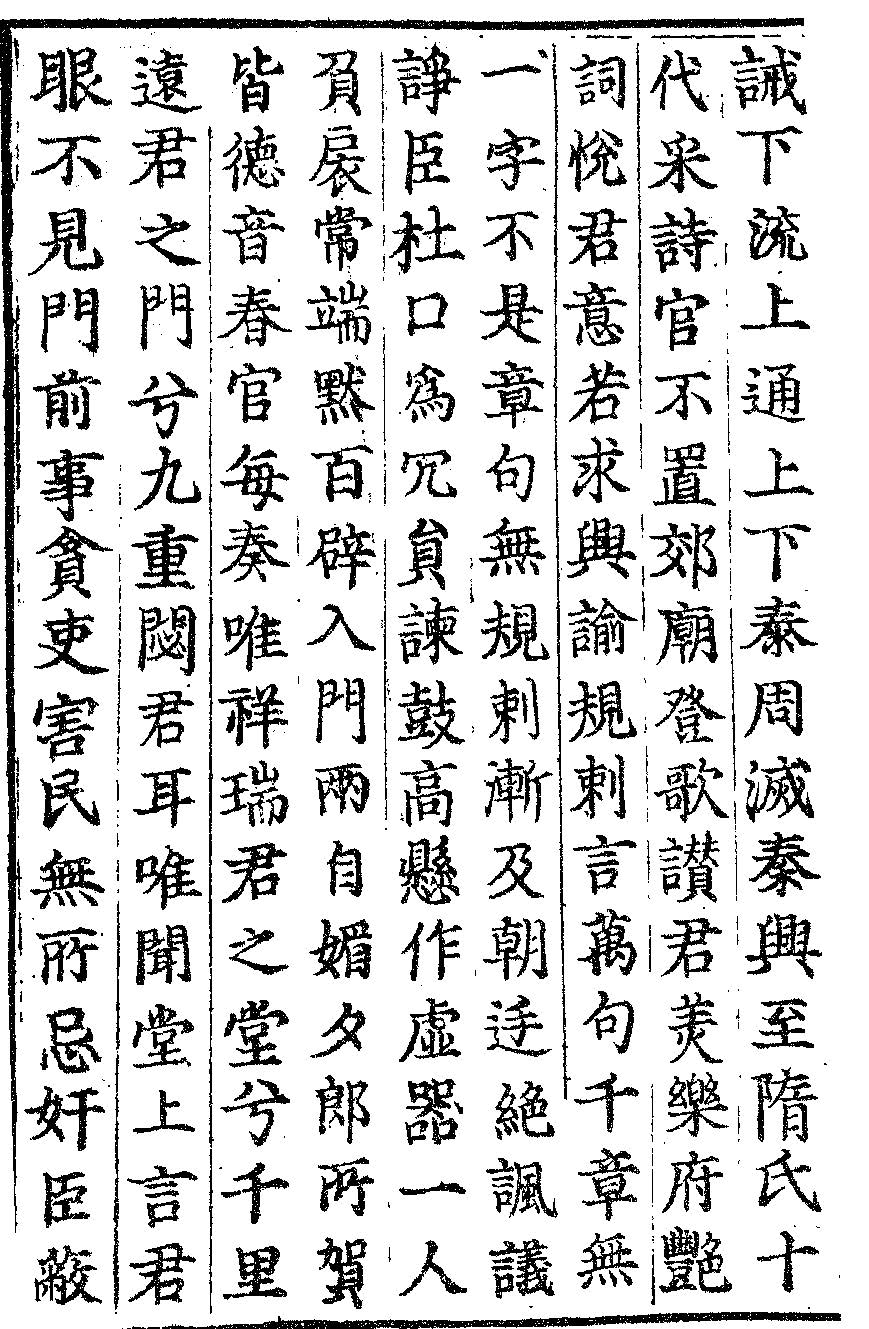 誡下流上通上下泰周滅秦興至隋氏十
代采詩官不置郊廟登歌讃君美樂府豔
詞悅君意若求興諭規刺言萬句千章無
一字不是章句無規刺漸及朝廷絕諷議
諍臣杜口爲冗員諫鼓高懸作虛器一人
負扆常端默百辟入門兩自媚夕郎所賀
皆德音春官每奏唯祥瑞君之堂兮千里
遠君之門兮九重閟君耳唯聞堂上言君
眼不見門前事貪吏害民無所忌奸臣蔽